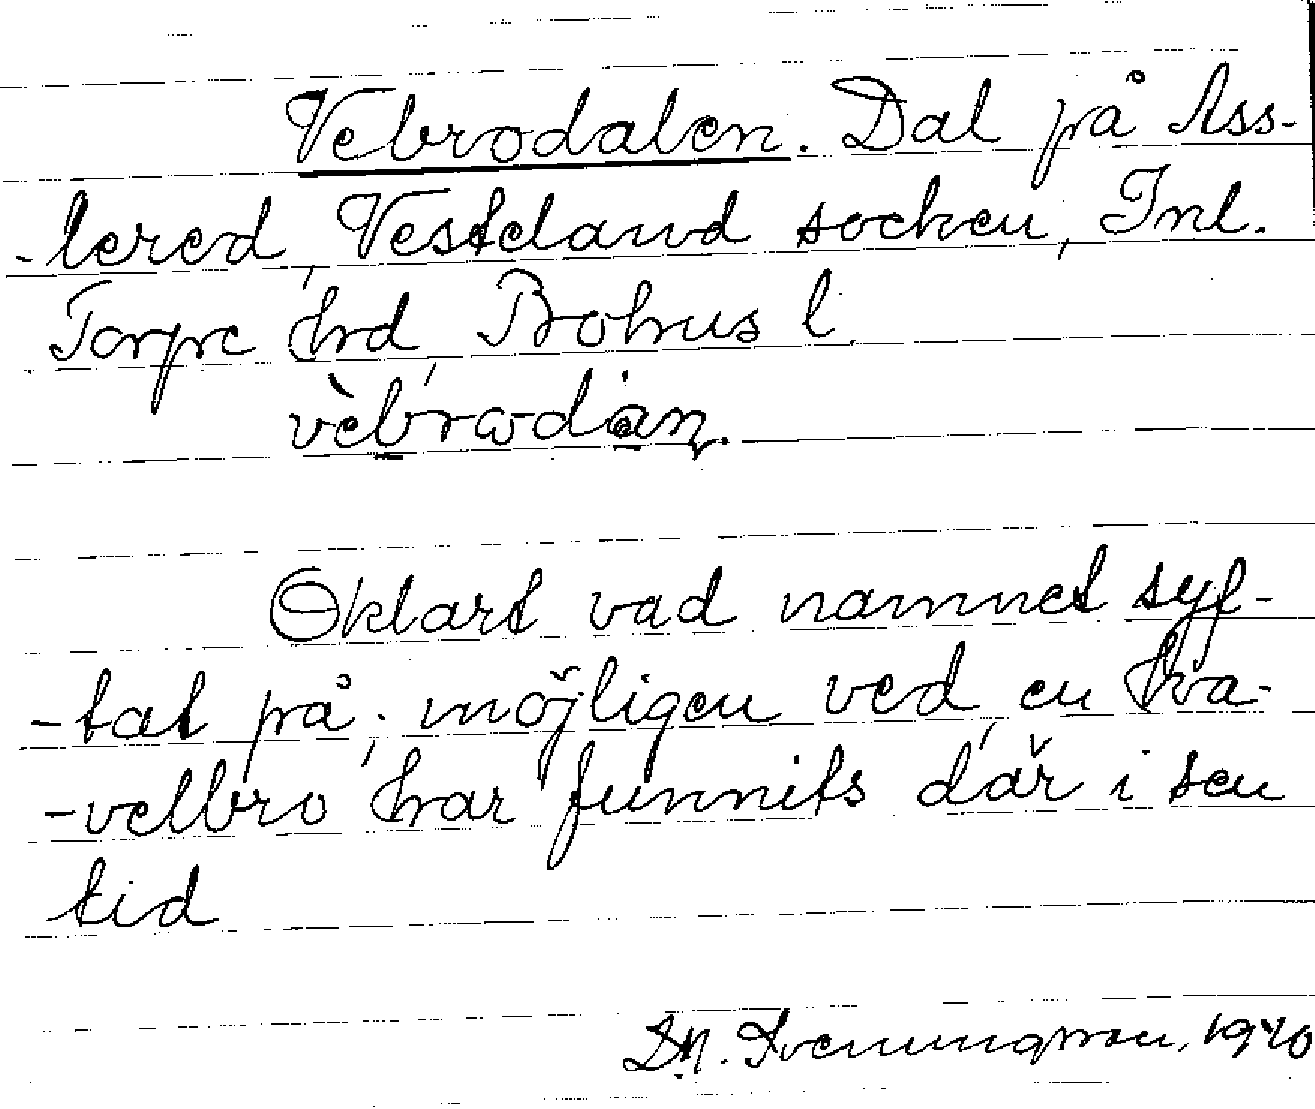 Vebrodalen. Dal på Ass-
-lered, Vesteland socken, Inl.
Torpe hrd, Bohus l.
vèbrωdan.
Oklart vad namnet syf-
-tat på, möjligen ved, en ka-
-velbro har funnits där i sen
tid
1940